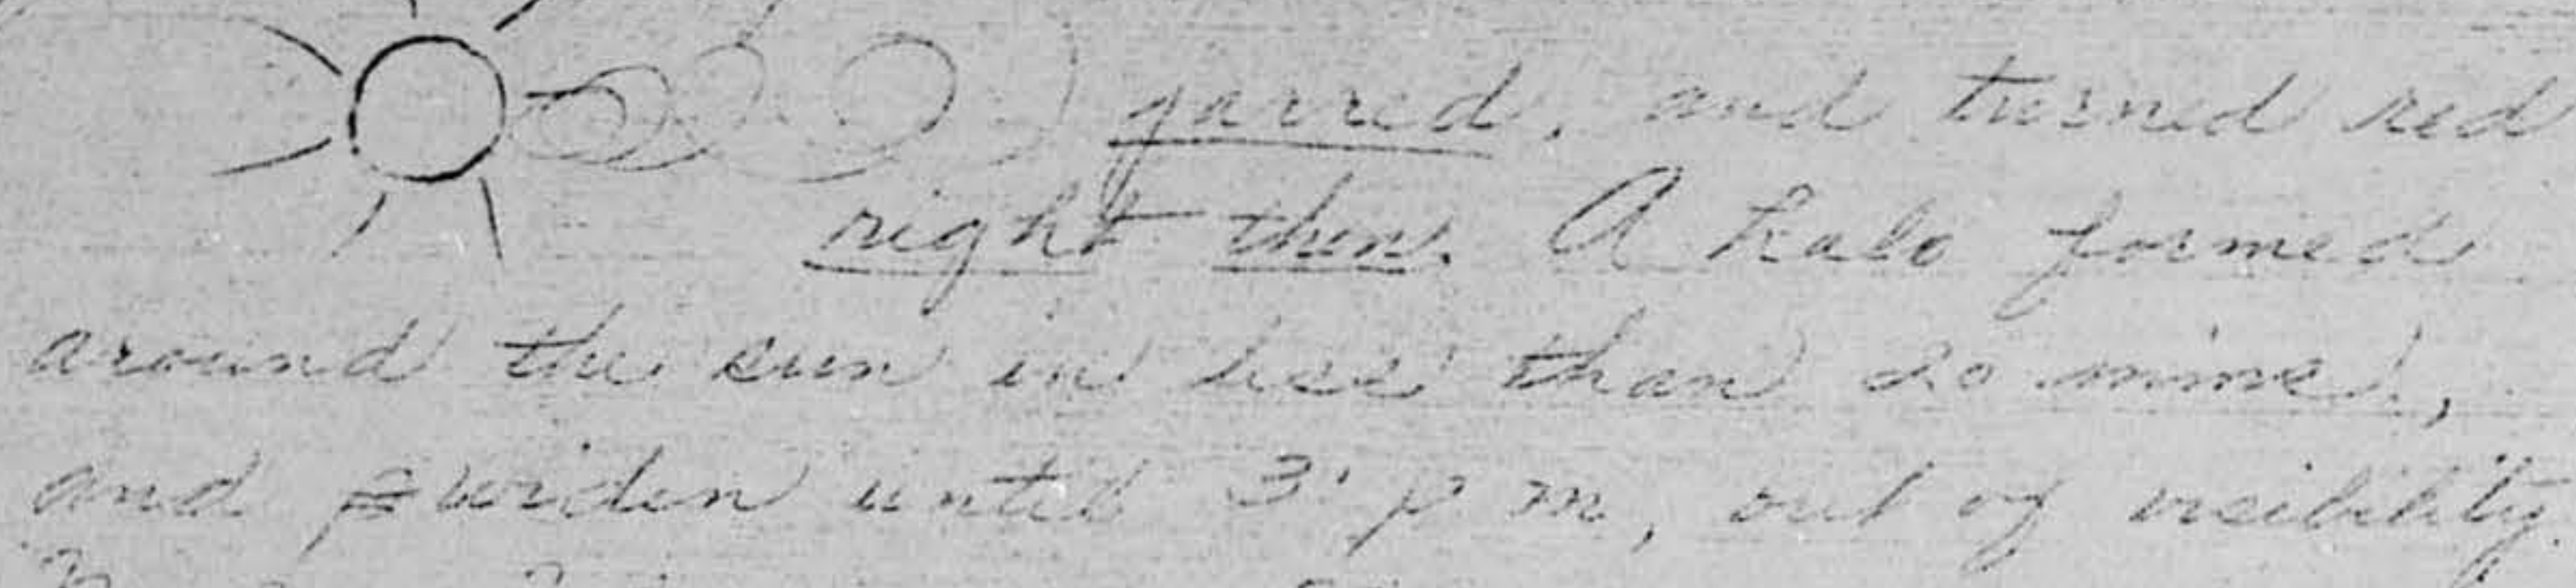 jarred, and turned red
right then. A halo formed
around the sun in less than 20 mins,
and widen until 3' p m, out of visibility.